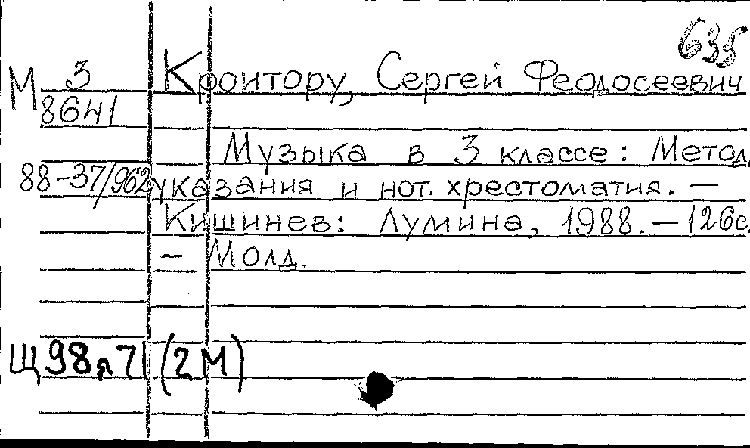 635
М 3
8641
Кроитору, Сергей Феодосеевич
Музыка в 3 классе: Метод.
88-37/962
указания и нот. хрестоматия. —
Кишинев: Лумина, 1988. — 126с.
— Молд.
Щ98я71(2М)